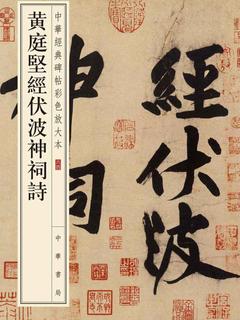 中華經典碑帖彩色放大本
黄庭堅經伏波神祠詩
中華書局
經伏波
神祠